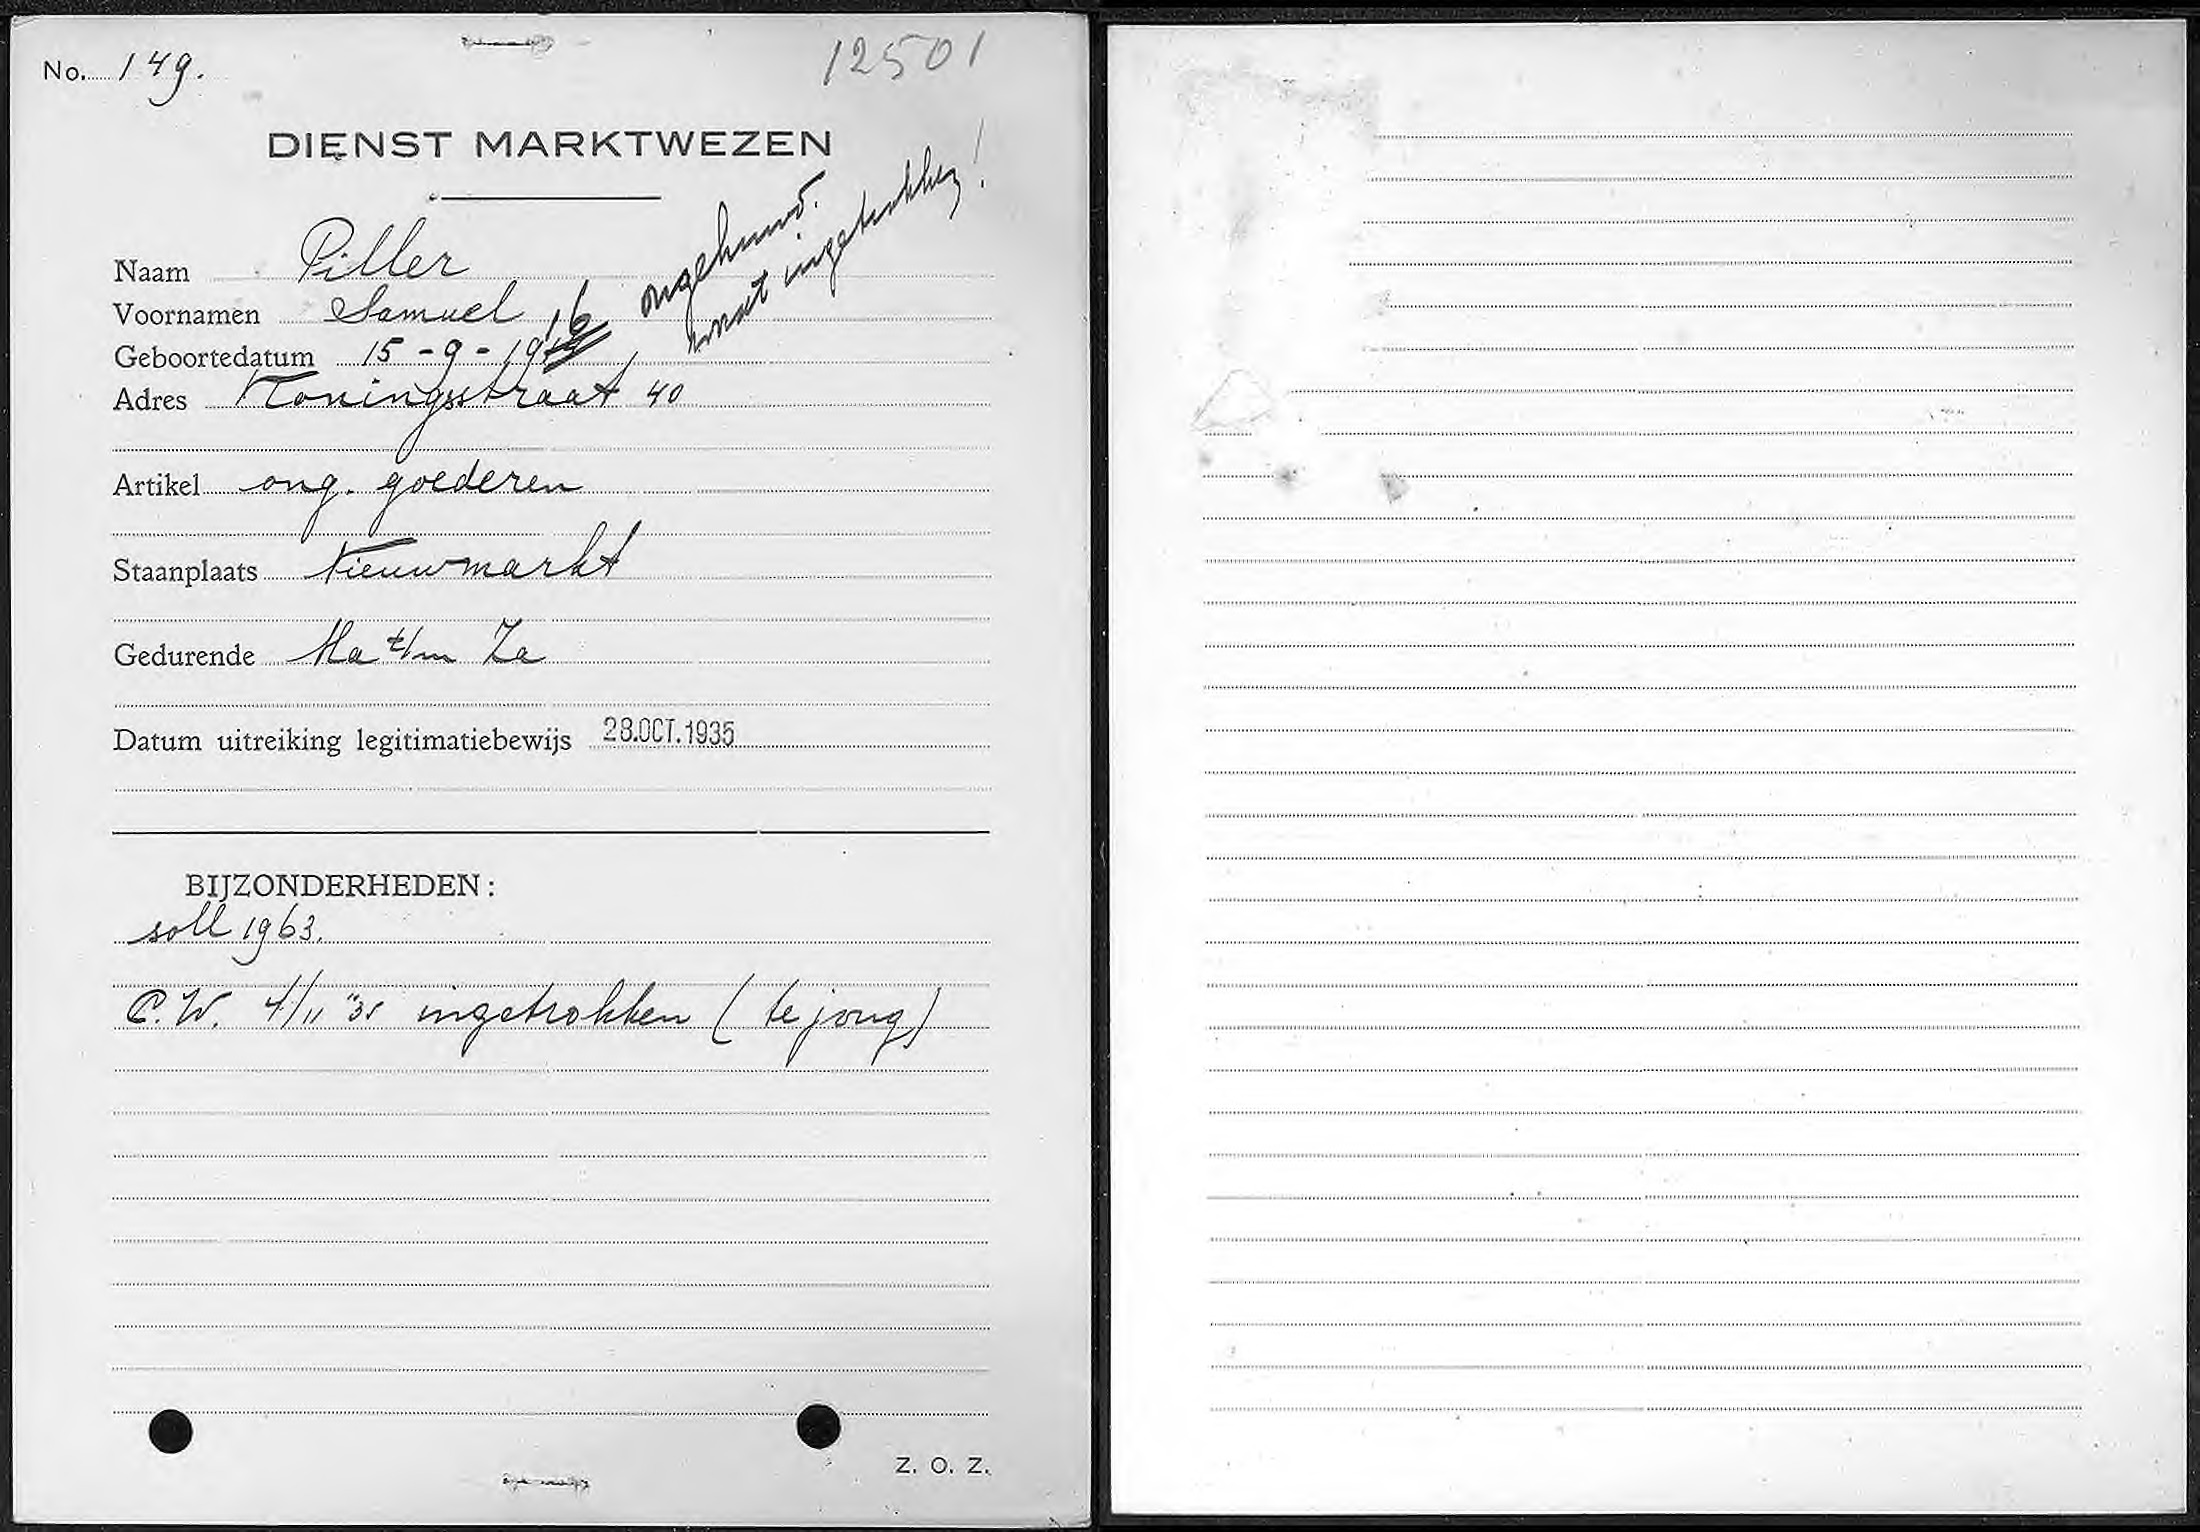 No. 149.
12501
DIENST MARKTWEZEN
ongehuwd.
wordt ingetrokken!
Naam Piller
Voornamen Samuel
Geboortedatum 15-9-1916
Adres Koningsstraat 40
Artikel ong. goederen
Staanplaats Nieuwmarkt
Gedurende Ma t/m Za
Datum uitreiking legitimatiebewijs 28.OCT.1935
BIJZONDERHEDEN:
soll 1963.
C.W. 4/11 '35 ingetrokken (te jong)
Z. O. Z.